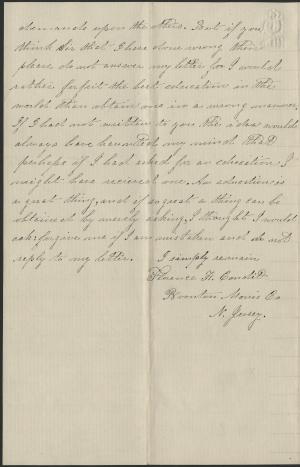 demands upon the others. But if you
think Sir that I have done wrong then
please do not answer my letter for I would
rather forfeit the best education in the
world than obtain one in a wrong manner.
If I had not written to you the idea would
always have haunted my mind that
perhaps if I had asked for an education I
might have recieved one. An education is
a great thing, and if so great a thing can be
obtained by merely asking, I thought I would
ask; forgive me if I am mistaken and do not
reply to my letter. I simply remain
Florence H. Condit
Boonton Morris Co
N. Jersey.